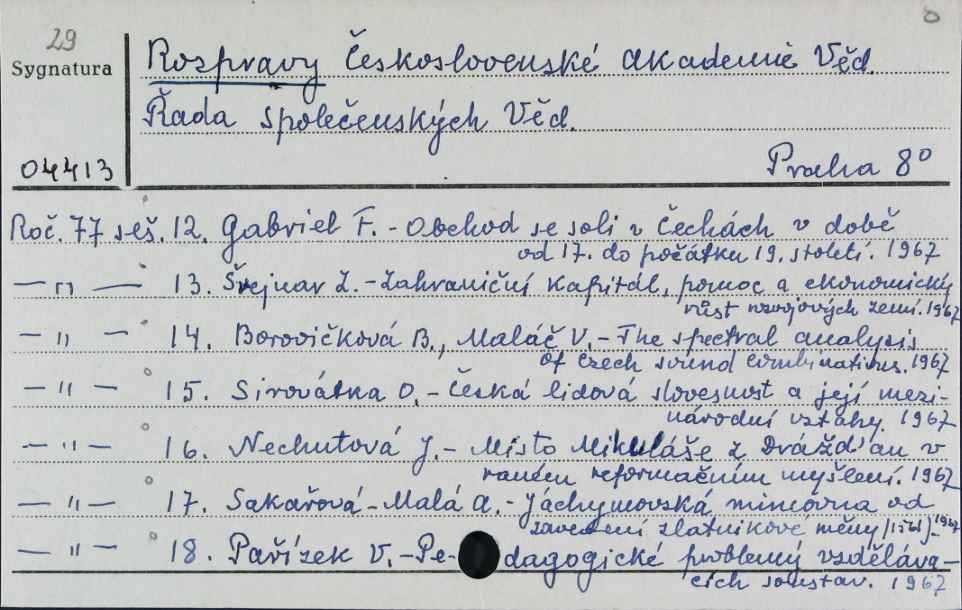 29
Sygnatura
04413
Rozpravy Československé akademie Věd.
Řada společenských Věd.
Praha 8°
Roč. 77 seš. 12. Gabriel F. - Obchod se solí v Čechách v době
od 17. do počátku 19. století. 1967
— " — 13. Švejnar Z. - Zahraniční kapitál, pomoc a ekonomický
růst rozvojových zemí. 1967
— " — 14. Borovičková B., Maláč V. - The spectral analysis
of Czech sound combinations. 1967
— " — 15. Sirovátka O. - Česká lidová slovesnost a její mezi-
národní vztahy. 1967
— " — 16. Nechutová J. - Místo Mikuláše z Drážďan v
raném reformačním myšlení. 1967
— " — 17. Sakařová-Malá A. - Jáchymovská mincovna od
zavedení zlatníkové měny /1561/. 1967
— " — 18. Pařízek V. - Pe-dagogické problemy vzděláva-
cích soustav. 1967